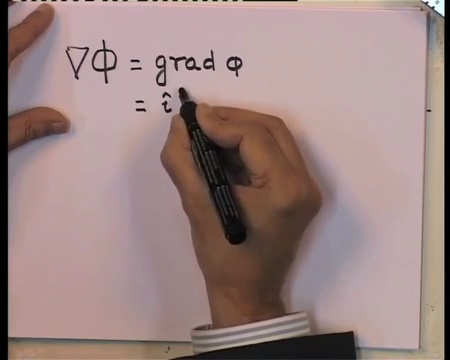 ∇Φ = grad φ
= î